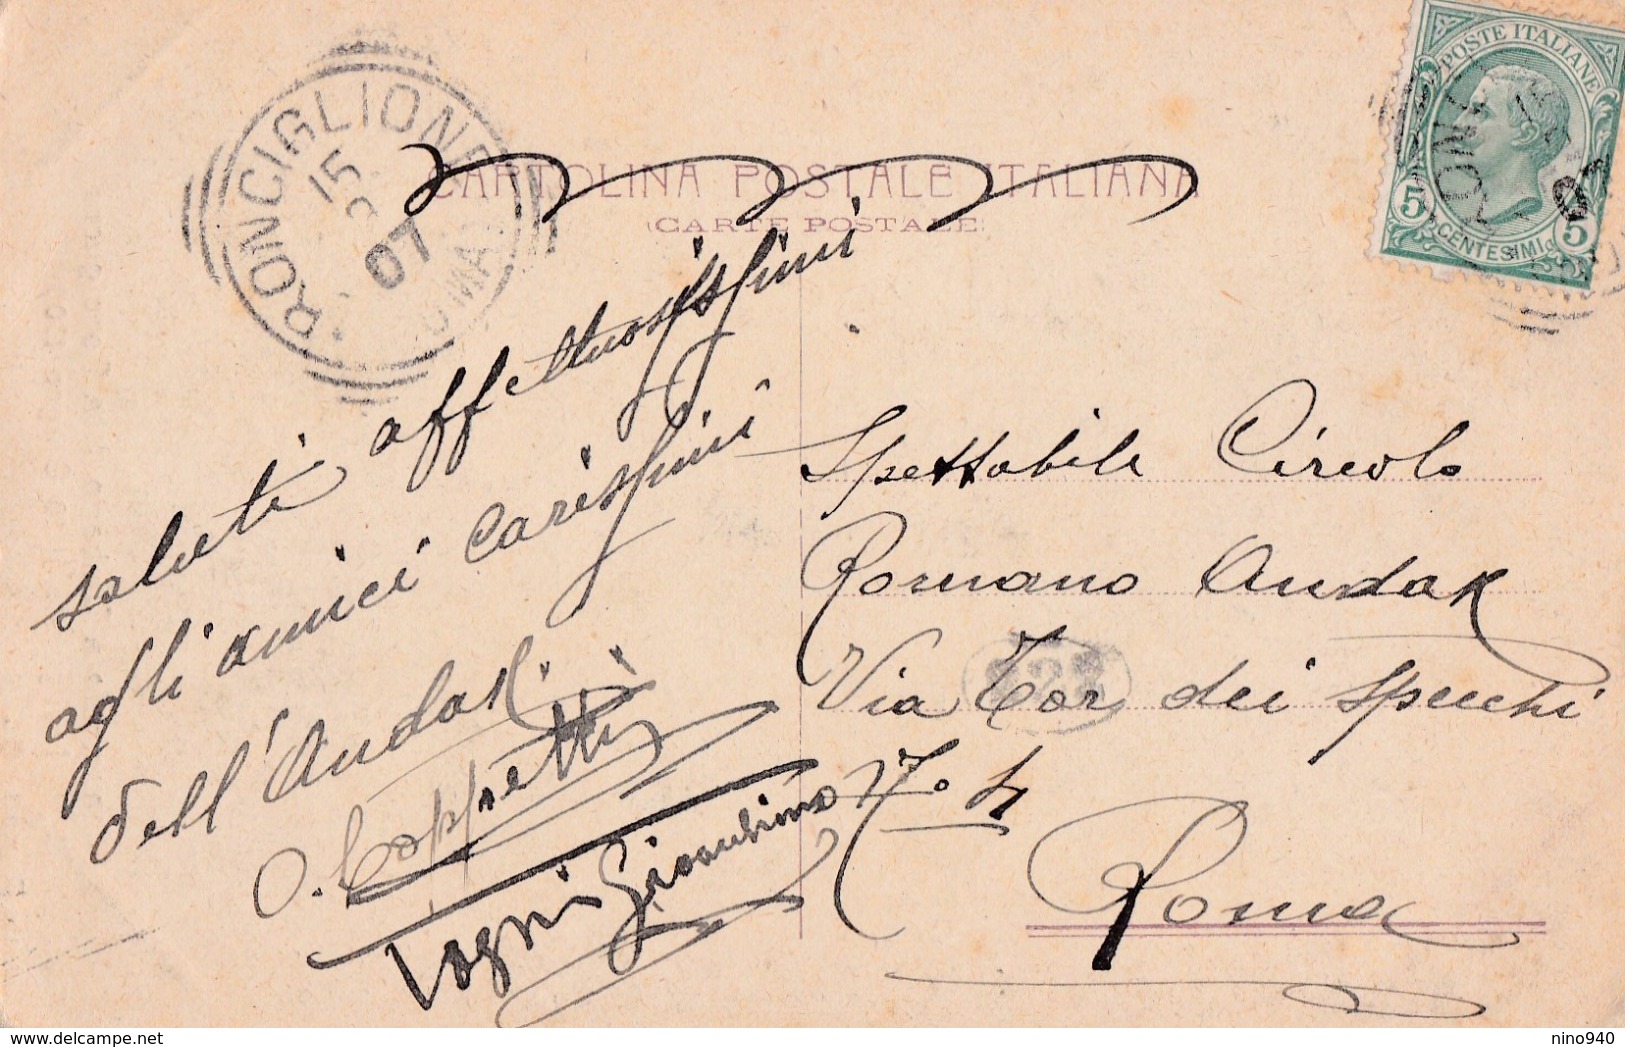 RONCIGLIONE
15
07
CARTOLINA POSTALE ITALIANA
(CARTE POSTALE)
POSTE ITALIANE
5 CENTESIMI 5
saluti affettuosissimi
agli amici carissimi
dell'Audax
O. Coppetti
Togni Gioacchino
Spettabile Circolo
Romano Audax
Via Tor dei Specchi
No 4
Roma
nino940